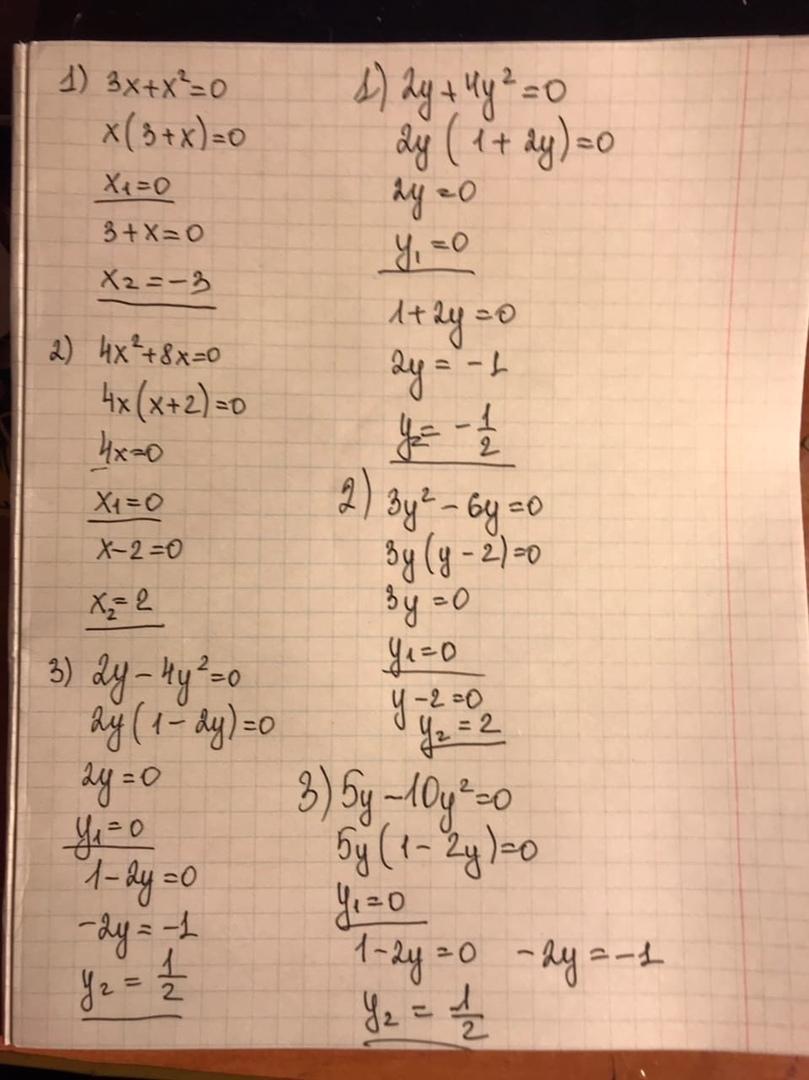 1) 3x+x²=0
x(3+x)=0
x₁=0
3+x=0
x₂=-3
2) 4x²+8x=0
4x(x+2)=0
4x=0
x₁=0
x-2=0
x₂=2
3) 2y-4y²=0
2y(1-2y)=0
2y=0
y₁=0
1-2y=0
-2y=-1
y₂=1/2
1) 2y+4y²=0
2y(1+2y)=0
2y=0
y₁=0
1+2y=0
2y=-1
y₂=-1/2
2) 3y²-6y=0
3y(y-2)=0
3y=0
y₁=0
y-2=0
y₂=2
3) 5y-10y²=0
5y(1-2y)=0
y₁=0
1-2y=0 -2y=-1
y₂=1/2